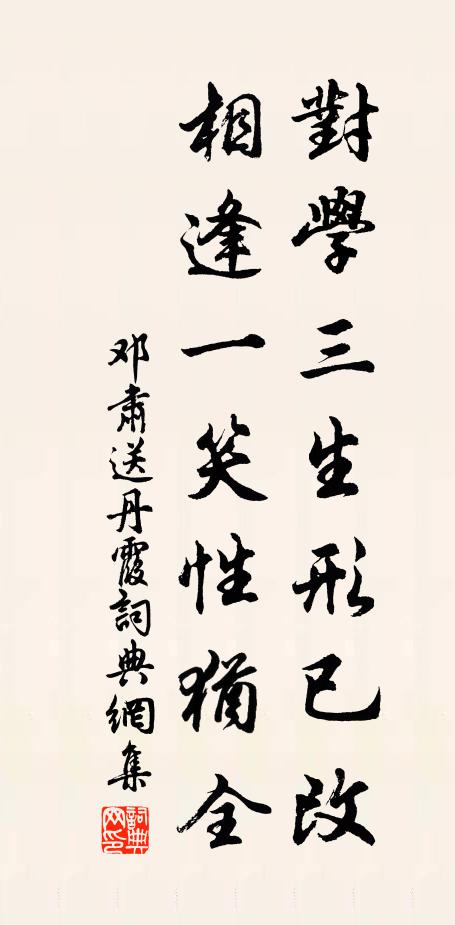 對學三生形已改
相逢一笑性猶全
邓肅送丹霞詞典網集
詞典网印